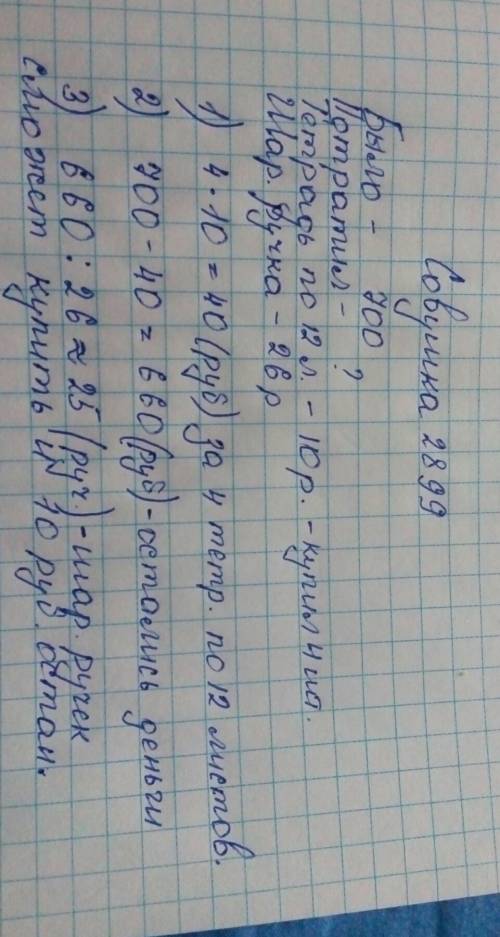 Совушка 2899
Было - 700
Потратил - ?
Тетрадь по 12 л. - 10р. - купил 4 шт.
Шар. ручка - 26р
1) 4·10=40(руб) за 4 тетр. по 12 листов.
2) 700-40=660(руб)-остались деньги
3) 660:26≈25 (руч.)-шар. ручек
сможет купить и 10 руб. остан.